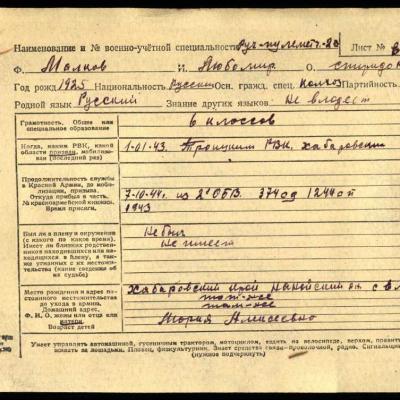 Наименование и № военно-учётной специальности Руч-пулемет-26 Лист №
Ф. Малков И. Любомир О. спиридо
Год рожд 1925 Национальность Русский Осн. гражд. спец. колхоз Партийность
Родной язык Русский Знание других языков Не владеет
Грамотность. Общее или специальное образование
6 классов
Когда, каким РВК, мобилизован (последний раз)
1-01-43. Троицким РВК, Хабаровский
Продолжительность службы в Красной Армии, до мобилизации, призыва.
Откуда прибыл в часть.
№ красноармейской книжки.
Время присяги.
7-10-44г. из 2 ОБВ. 374 од 1244 оп
1943
Был ли в плену и окружении (с какого по какое время).
Имеет ли близких родственников находившихся или находящихся в плену, а также угнанных с их местожительства (какие сведения об их судьбе)
Не был
Не имеет
Место рождения и адрес постоянного местожительства до ухода в армию.
Домашний адрес.
Ф. И. О. жены или отца или матери
Возраст детей
Хабаровский край Нанойский с в
там-же
там-же
Мария Алексеевна
Умеет управлять автомашиной, гусеничным трактором, мотоциклом, ездить на велосипеде, верхом, править
лошадьми. Пловец, физкультурник. Знает средства связи—проволочной, радио. Сигнальщик
(нужное подчеркнуть)